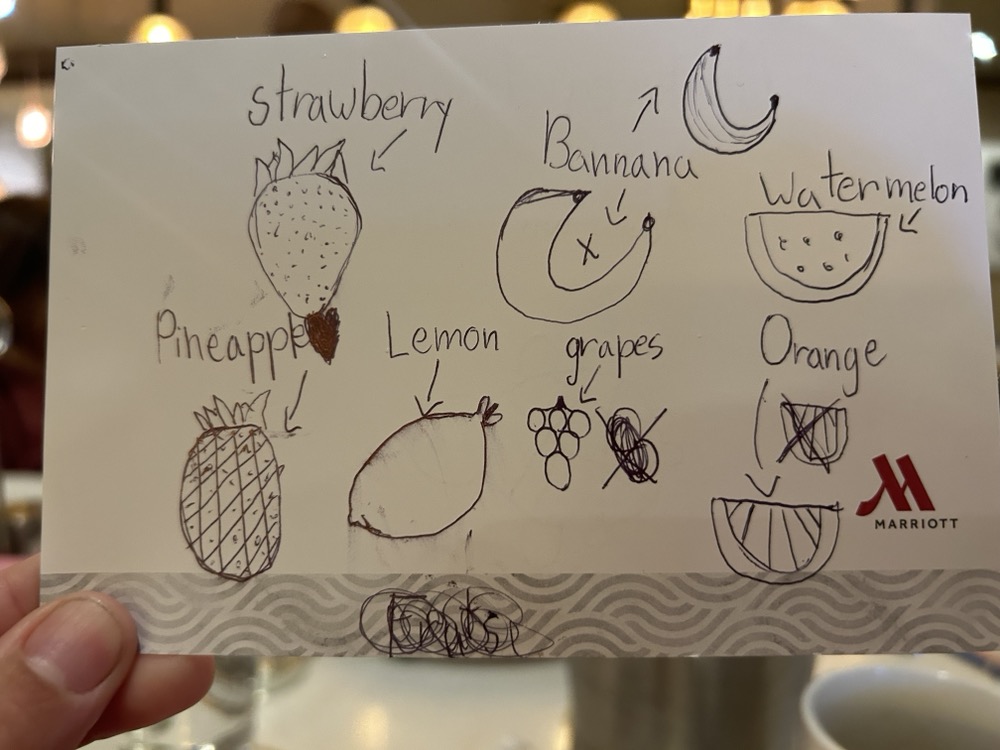 strawberry
Bannana
Watermelon
x
Pineapple
Lemon
grapes
Orange
MARRIOTT